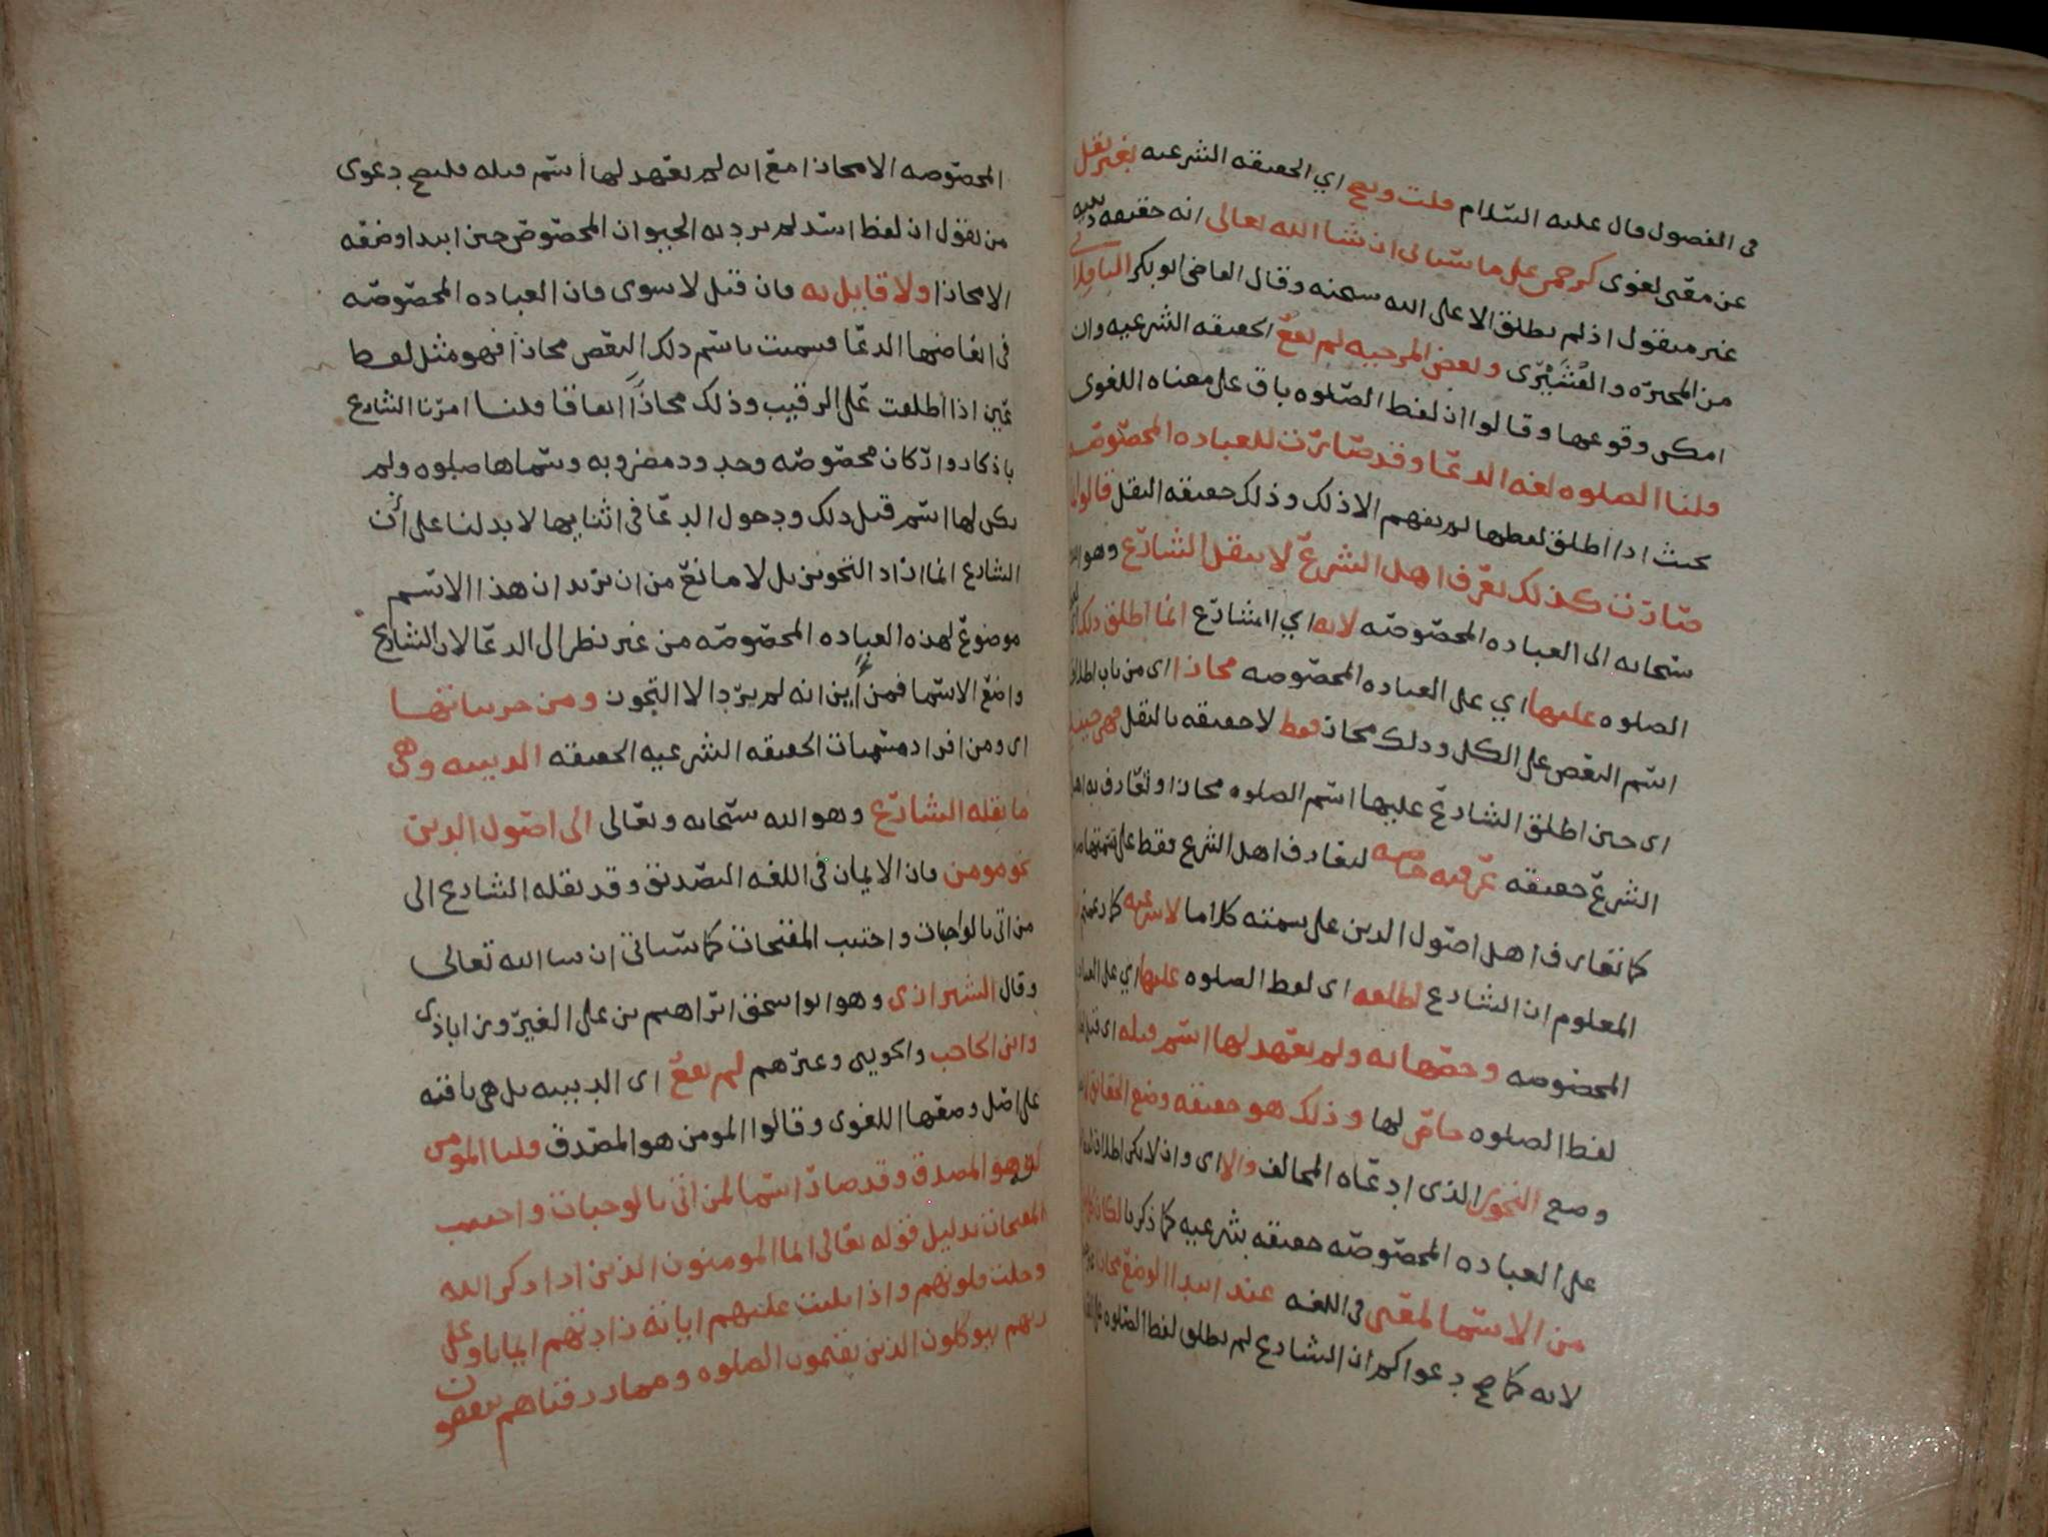 في الفصول قال عليه السلام قلت ويصح اي الحقيقه الشرعيه بغير نقل
عن معنى لغوي كرحمن على ما سياتي ان شا الله تعالى انه حقيقه دينيه
غير منقول اذ لم يطلق الا على الله سبحنه وقال القاضي ابو بكر الباقلاني
من المجبره والقشيري وبعض المرجيه لم تقع الحقيقه الشرعيه وان
امكن وقوعها وقالوا ان لفظ الصلوه باق على معناه اللغوي
قلنا الصلوه لغه الدعا وقد صارت للعباده المخصوصه
بحيث اذا اطلق لفظها لم يفهم الا ذلك وذلك حقيقه النقل قالوا
صارت كذلك بعرف اهل الشرع لا بنقل الشارع وهو
سبحانه الى العباده المخصوصه لانه اي الشارع انما اطلق ذلك
الصلوه عليها اي على العباده المخصوصه مجازا اي من باب اطلاق
اسم البعض على الكل وذلك مجاز فقط لا حقيقه بالنقل فهي حينئذ
اي حين اطلق الشارع عليها اسم الصلوه مجازا وتعارف به اهل
الشرع حقيقه عرفيه خاصه لتعارف اهل الشرع فقط على تسميتها
كما تعارف اهل اصول الدين على تسميته كلاما لا شرعيه كما زعمتم
المعلوم ان الشارع اطلقه اي لفظ الصلوه عليها اي على العباده
المخصوصه وخصها به ولم يعهد لها اسم قبله اي قبل
لفظ الصلوه خاص لها وذلك هو حقيقه وضع الحقائق لا
وضع التجوز الذي ادعاه المخالف والا اي وان لا يكن اطلاق
على العباده المخصوصه حقيقه شرعيه كما ذكرنا لكان
من الاسما لمعنى في اللغه عند ابتدا الوضع مجازا
لانه كما صح دعواكم ان الشارع لم يطلق لفظ الصلوه على
المخصوصه الا مجازا مع انه لم يعهد لها اسم قبله فليصح دعوى
من يقول ان لفظ اسد لم يرد به الحيوان المخصوص حين ابتدا وضعه
الا مجازا ولا قايل به فان قيل لا سوى فان العباده المخصوصه
في ابعاضها الدعا فسميت باسم ذلك البعض مجازا فهو مثل لفظ
عين اذا اطلقت على الرقيب وذلك مجازا اتفاقا قلنا امرنا الشارع
باذكار واركان مخصوصه وحدود مضروبه وسماها صلوه ولم
يكن لها اسم قبل ذلك ودخول الدعا في اثنايها لا يدلنا على ان
الشارع انما اراد التجوز بل لا مانع من ان يريد ان هذا الاسم
موضوع لهذه العباده المخصوصه من غير نظر الى الدعا لان الشارع
واضع الاسما فمن اين انه لم يرد الا التجوز ومن جزئياتها
اي ومن افراد مسميات الحقيقه الشرعيه الحقيقه الدينيه وهي
ما نقله الشارع وهو الله سبحانه وتعالى الى اصول الدين
نحو مومن فان الايمان في اللغه التصديق وقد نقله الشارع الى
من اتى بالواجبات واجتنب المقبحات كما سياتي ان شا الله تعالى
وقال الشيرازي وهو ابو اسحق ابراهيم بن علي الفيروز اباذي
وابن الحاجب والجويني وغيرهم لم تقع اي الدينيه بل هي باقيه
على اصل وضعها اللغوي وقالوا المومن هو المصدق قلنا المومن
لغه هو المصدق وقد صار اسما لمن اتى بالوجبات واجتنب
المقبحات بدليل قوله تعالى انما المومنون الذين اذا ذكر الله
وجلت قلوبهم واذا تليت عليهم اياته زادتهم ايمانا وعلى
ربهم يتوكلون الذين يقيمون الصلوه ومما رزقناهم ينفقون